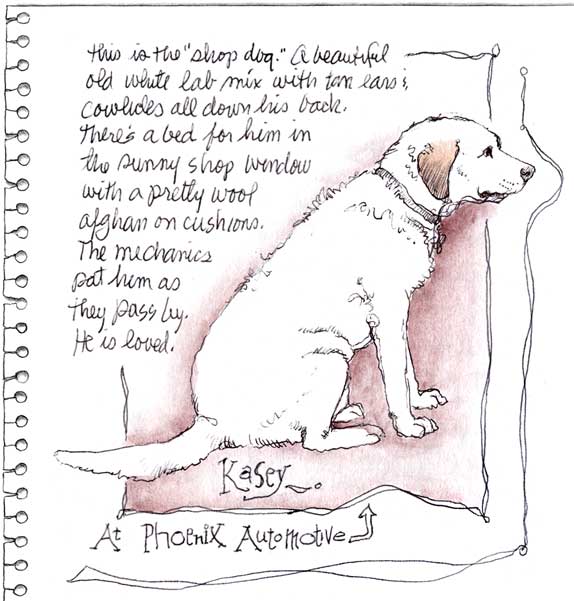 this is the "shop dog." A beautiful
old white lab mix with tan ears &
cowlicks all down his back.
There's a bed for him in
the sunny shop window
with a pretty wool
afghan on cushions.
The mechanics
pat him as
they pass by.
He is loved.
Kasey
At Phoenix Automotive